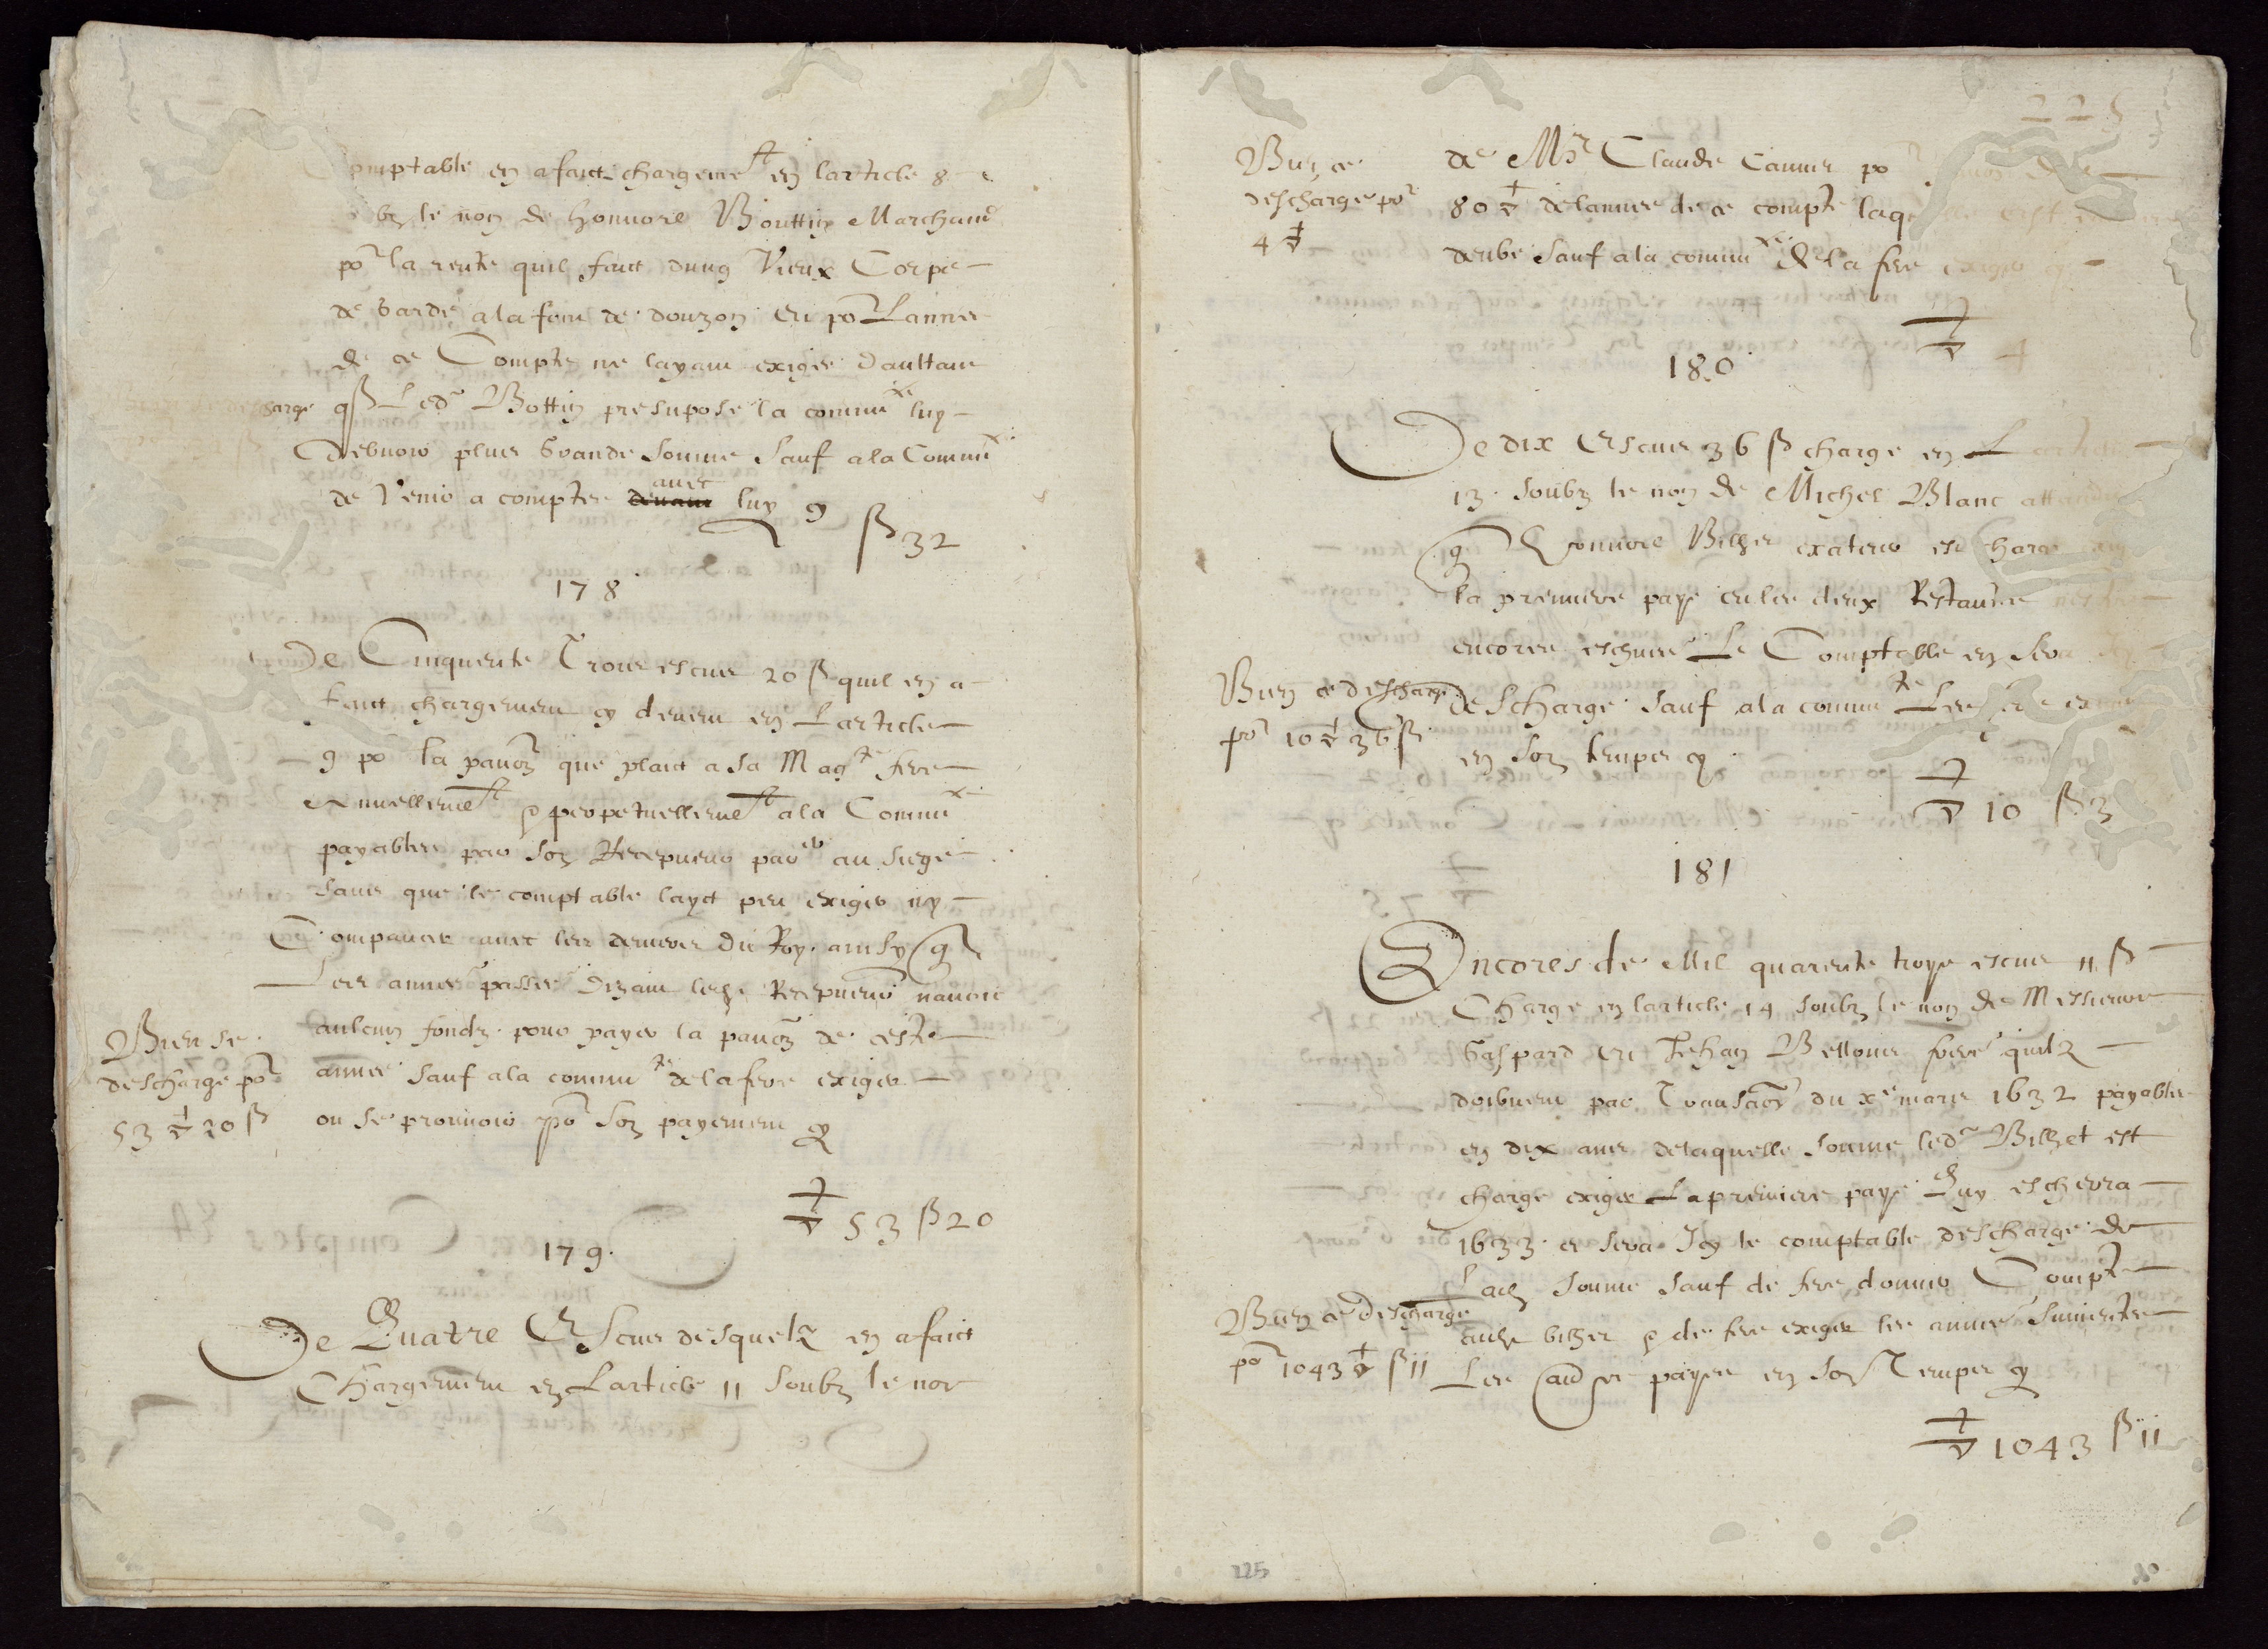 Comptable en a faict chargemet en larticle 8
le non de honnore Bouttin Marchand
por la rente quil faict dung Vieux Corps
de garde a la font de douzon Et por Lannee
de ce Compte ne layant exigee daultant
descharge q ß Led Bottin presupose la commte luy
debvoir plus Grande Somme Sauf a la Commte
de Venir a compter devant avec luy cy
ß 32
178
De Cinquente Trois escus 20 ß quil en a
faict chargement cy devent en Larticle
9 po la pansion que plaict a sa Magte fere
Annuellemet & perpetuellemet a la Commte
payables par son Recepveur par er au siege
Sans que le comptable layct peu exiger ny
Compancer avec les deniers du Roy ainsy q
Les annees passees Dizant lesd Recepveur navoir
aulcun fondz pour payer la pansion de ceste
annee Sauf a la commte de la fere exiger
ou se prouvoir por Son payement cy
Bien se
descharge por
53 20 ß
53 ß 20
179.
De Quatre Escus desquelz en a faict
Chargement en Larticle 11 Soubz le non
225
de Mr Claude Cannis po
80 de lannee de ce compte laq est
deube Sauf a la commte de la fere exiger cy
Bien ce
descharge por
4
4
180
De dix Escus 36 ß charge en Larticle
13 Soubz le non de Michel Blanc attandu
q honnore Bilhet exateur est charge
la premiere paye et les deux Restantes
encores eschuee Le Comptable en Sera
descharge Sauf a la commte Les fere exiger
en Son temps cy
Bien ce descharge
por 10 36 ß
10 ß 3
181
Encores de Mil quarente troys escus 11 ß
Charge en larticle 14 Soubz le non de Messieurs
Gaspard Et Jehan Bellons frere quilz
doibvent par Transaon du xe mars 1632 payables
en dix ans de laquelle Somme led Bilhet est
charge exiger La premiere paye Quy escherra
1633 et sera Icy le comptable descharge de
Lad Somme Sauf de fere donner Compte
aud bilhet & de fere exiger les annees Suivents
Les aud payes en Son Temps cy
Bien ce descharge
por 1043 ß 11
1043 ß 11
225